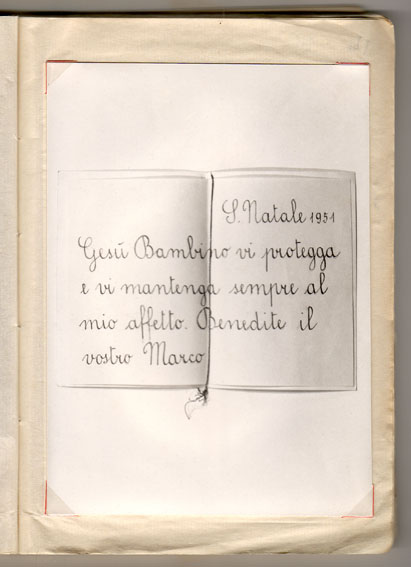 S. Natale 1951
Gesù Bambino vi protegga
e vi mantenga sempre al
mio affetto. Benedite il
vostro Marco